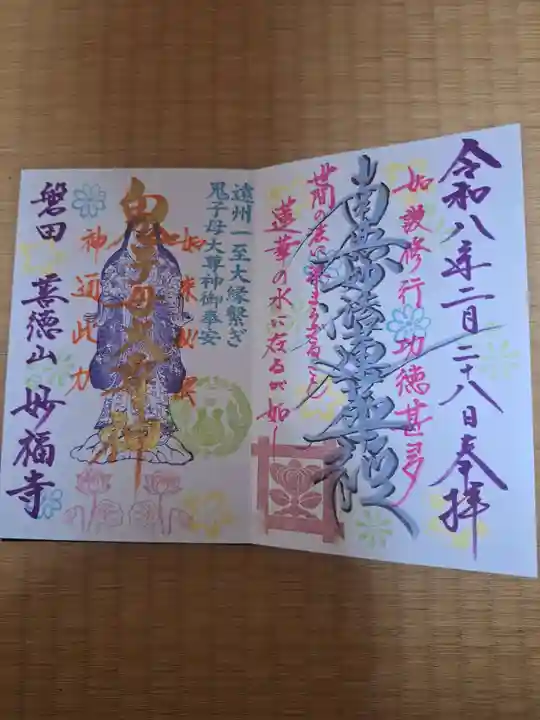 令和八年二月二十八日奉拝
如説修行 功徳甚多
南無妙法蓮華経
世間の法に染まらざること
蓮華の水に在るが如し
遠州一至大縁繋ぎ
鬼子母大尊神御奉安
如来秘密
鬼子母大尊神
神通之力
磐田 善徳山 妙福寺